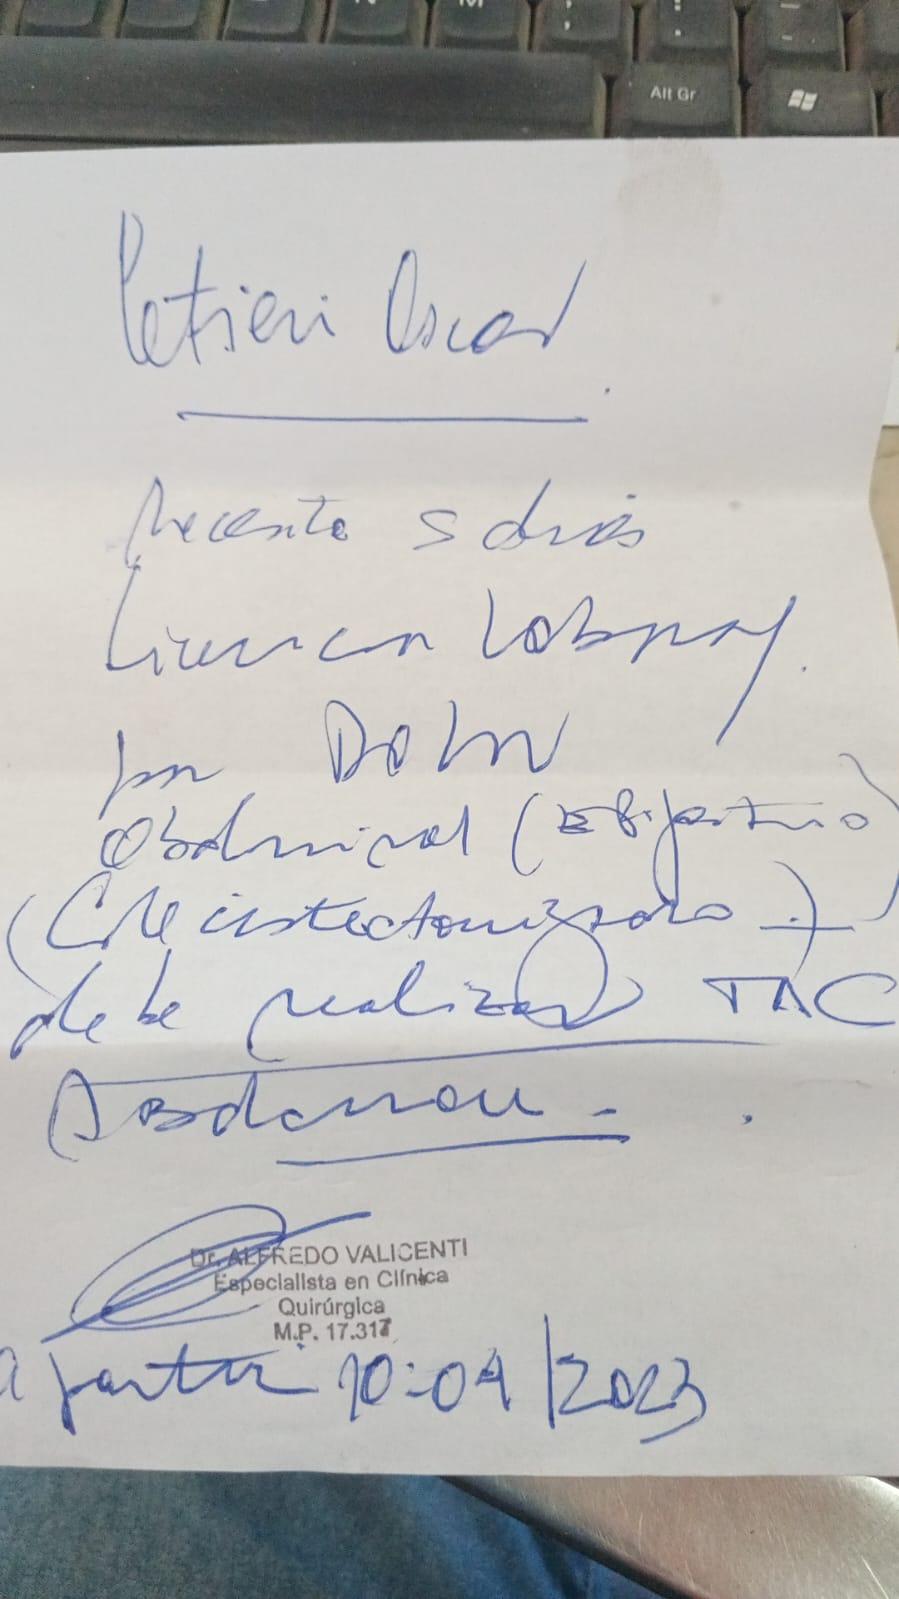 N M ; :
Alt Gr
Petieri Oscar
Necesita 5 días
Licencia Laboral.
por Dolor
Abdominal (Epigastrio)
(Colecistectomizado)
debe realizar TAC
Abdomen.
Dr. ALFREDO VALICENTI
Especialista en Clínica
Quirúrgica
M.P. 17.317
a partir 10-04/2023